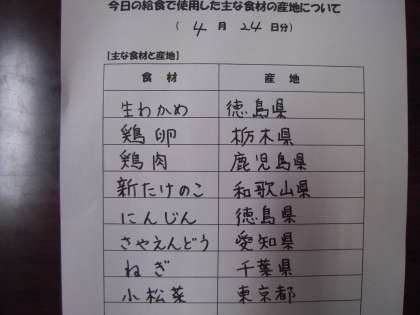 今日の給食で使用した主な食材の産地について
( 4 月 24 日分)
[主な食材と産地]
食 材 産 地
生わかめ 徳島県
鶏卵 栃木県
鶏肉 鹿児島県
新たけのこ 和歌山県
にんじん 徳島県
さやえんどう 愛知県
ねぎ 千葉県
小松菜 東京都